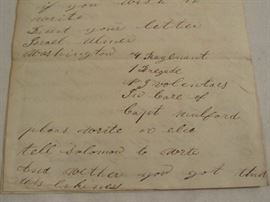 if you wish to
write
Direct your letter
Israel
Washington 4 Regenant
1 Bregede
N J volenters
In Care of
Capt Mulford
pleas write or els
tell solomon to write
and wether you got that